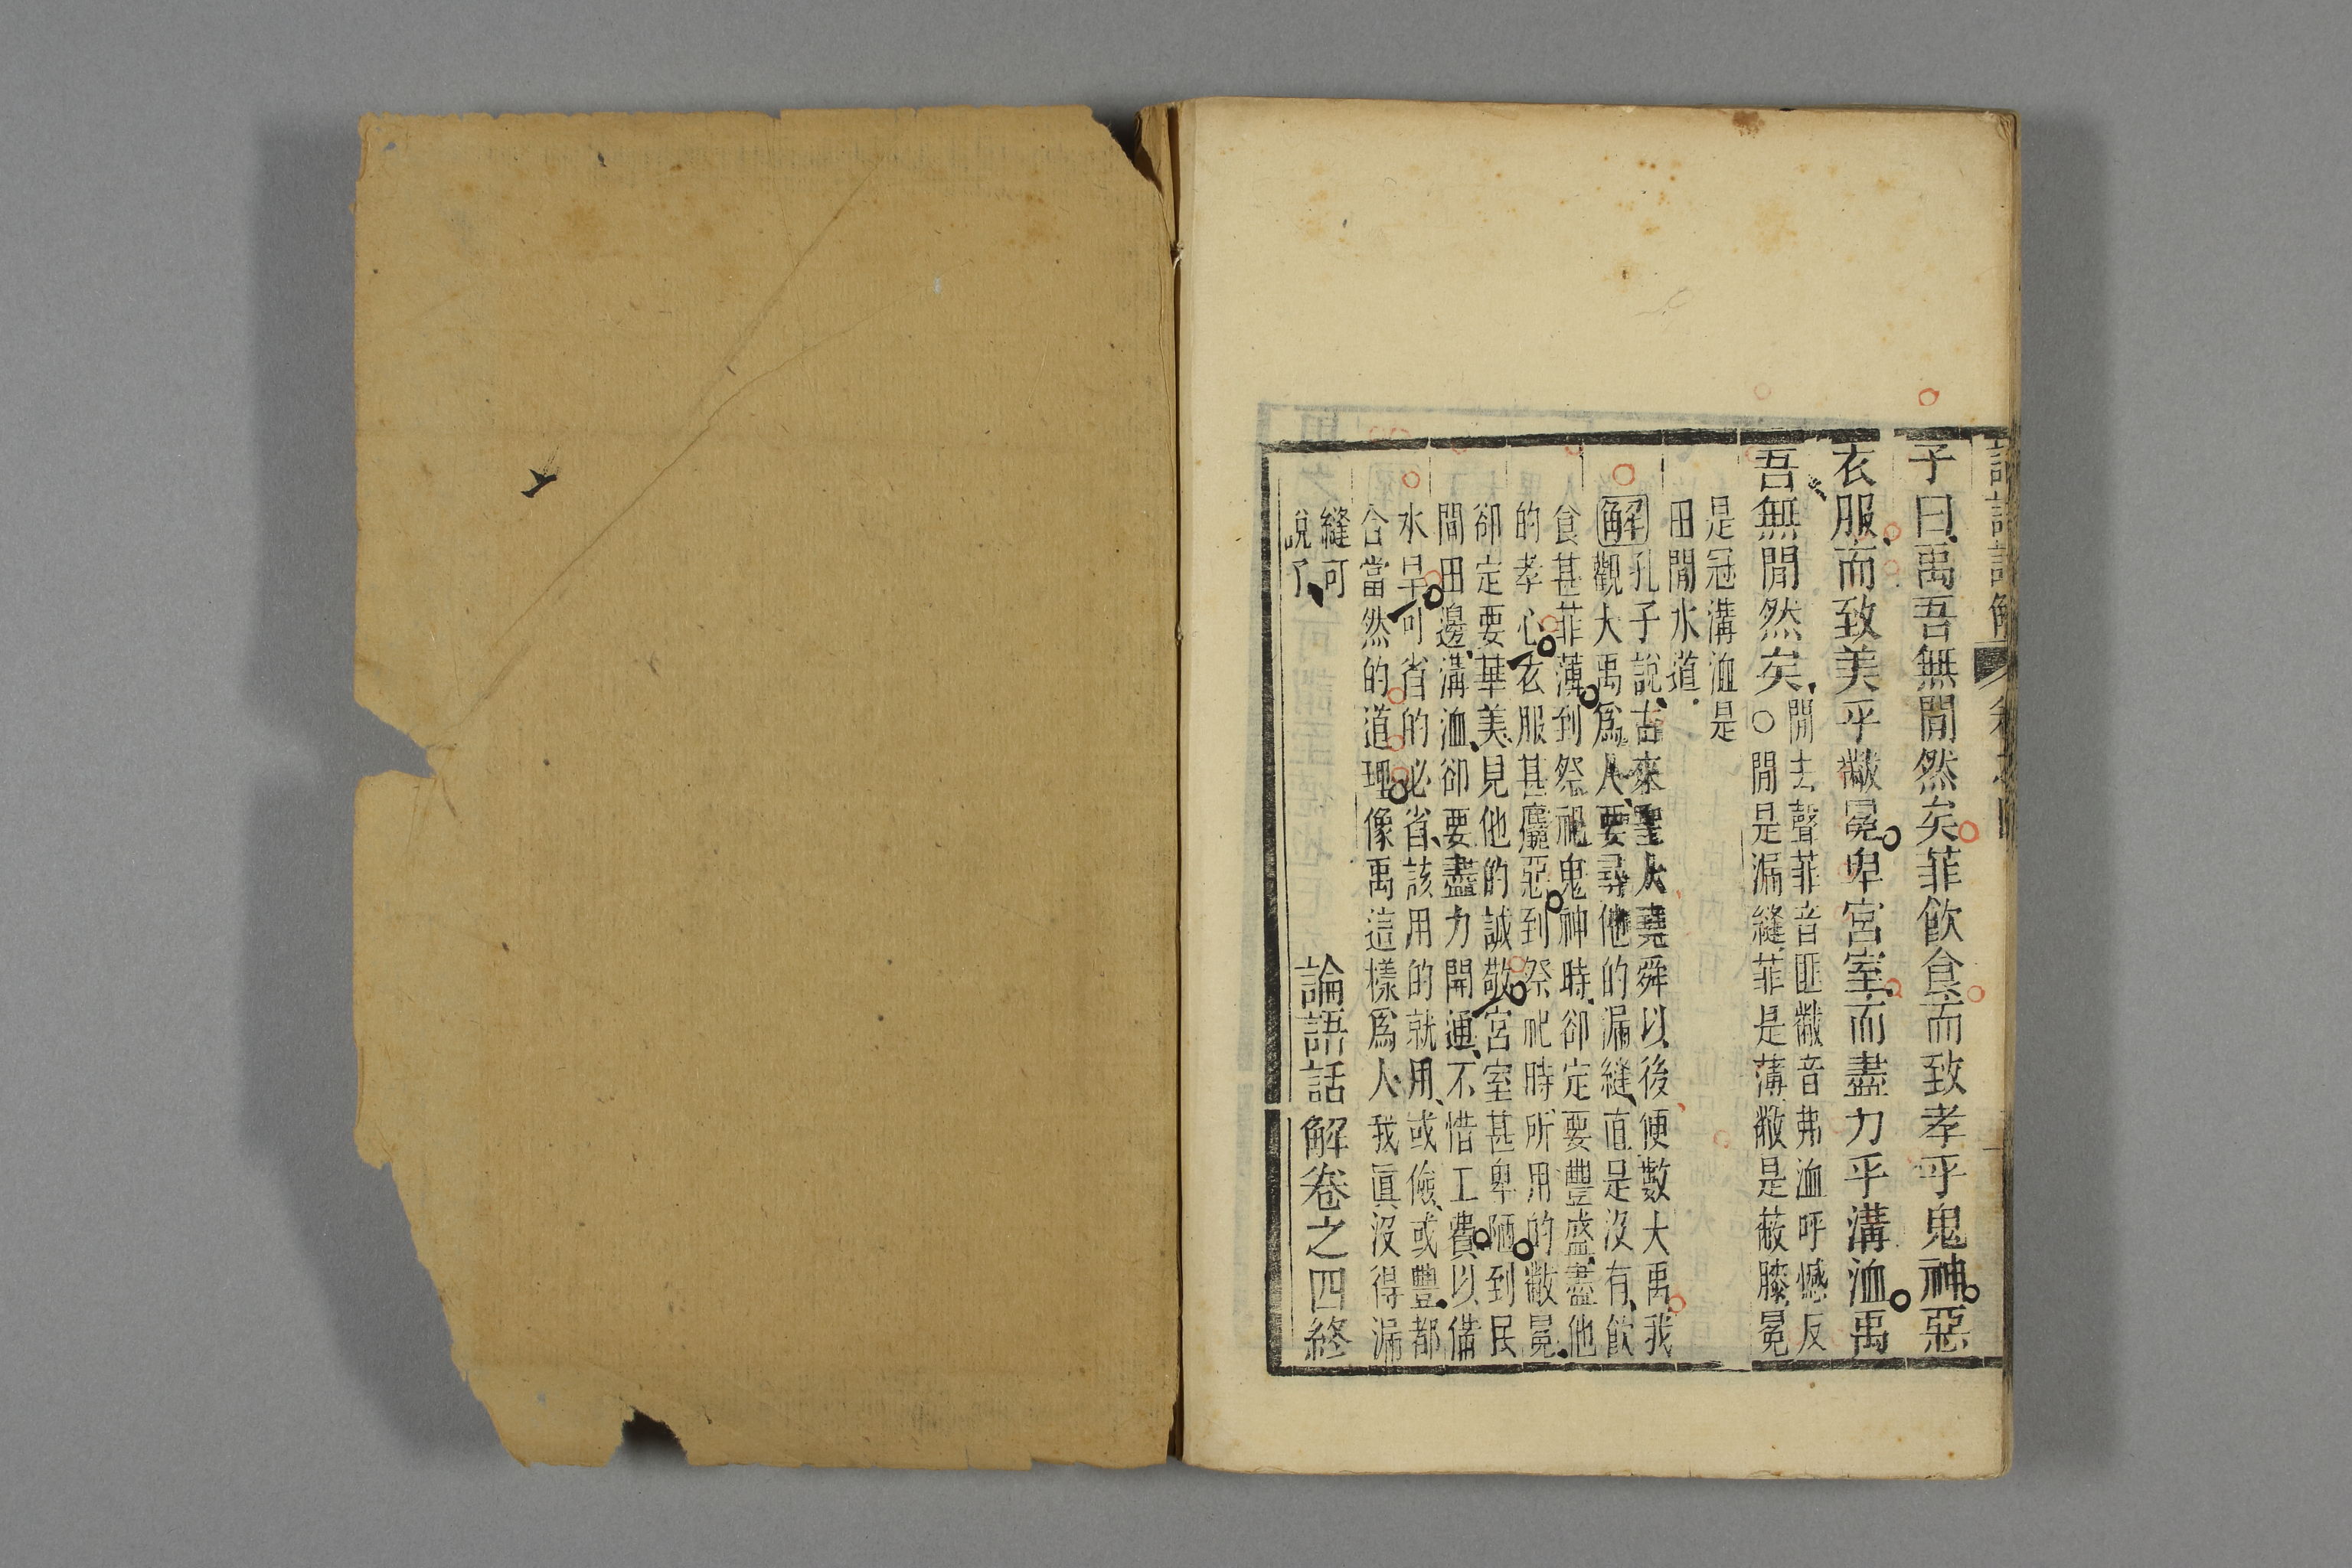 論語話解 卷之四
子曰禹吾無閒然矣菲飲食而致孝乎鬼神惡
衣服而致美乎黻冕卑宮室而盡力乎溝洫禹
吾無閒然矣
閒去聲菲音匪黻音弗洫呼憾反
○閒是漏縫菲是薄黻是蔽膝冕
是冠溝洫是
田閒水道
解
孔子說古來聖人堯舜以後便數大禹我
觀大禹爲人要尋他的漏縫直是沒有飲
食甚菲薄到祭祀鬼神時卻定要豐盛盡他
的孝心衣服甚麤惡到祭祀時所用的黻冕
卻定要華美見他的誠敬宮室甚卑陋到民
間田邊溝洫卻要盡力開通不惜工費以備
水旱可省的必省該用的就用或儉或豐都
合當然的道理像禹這樣爲人我眞沒得漏
縫可
說了
論語話解卷之四終